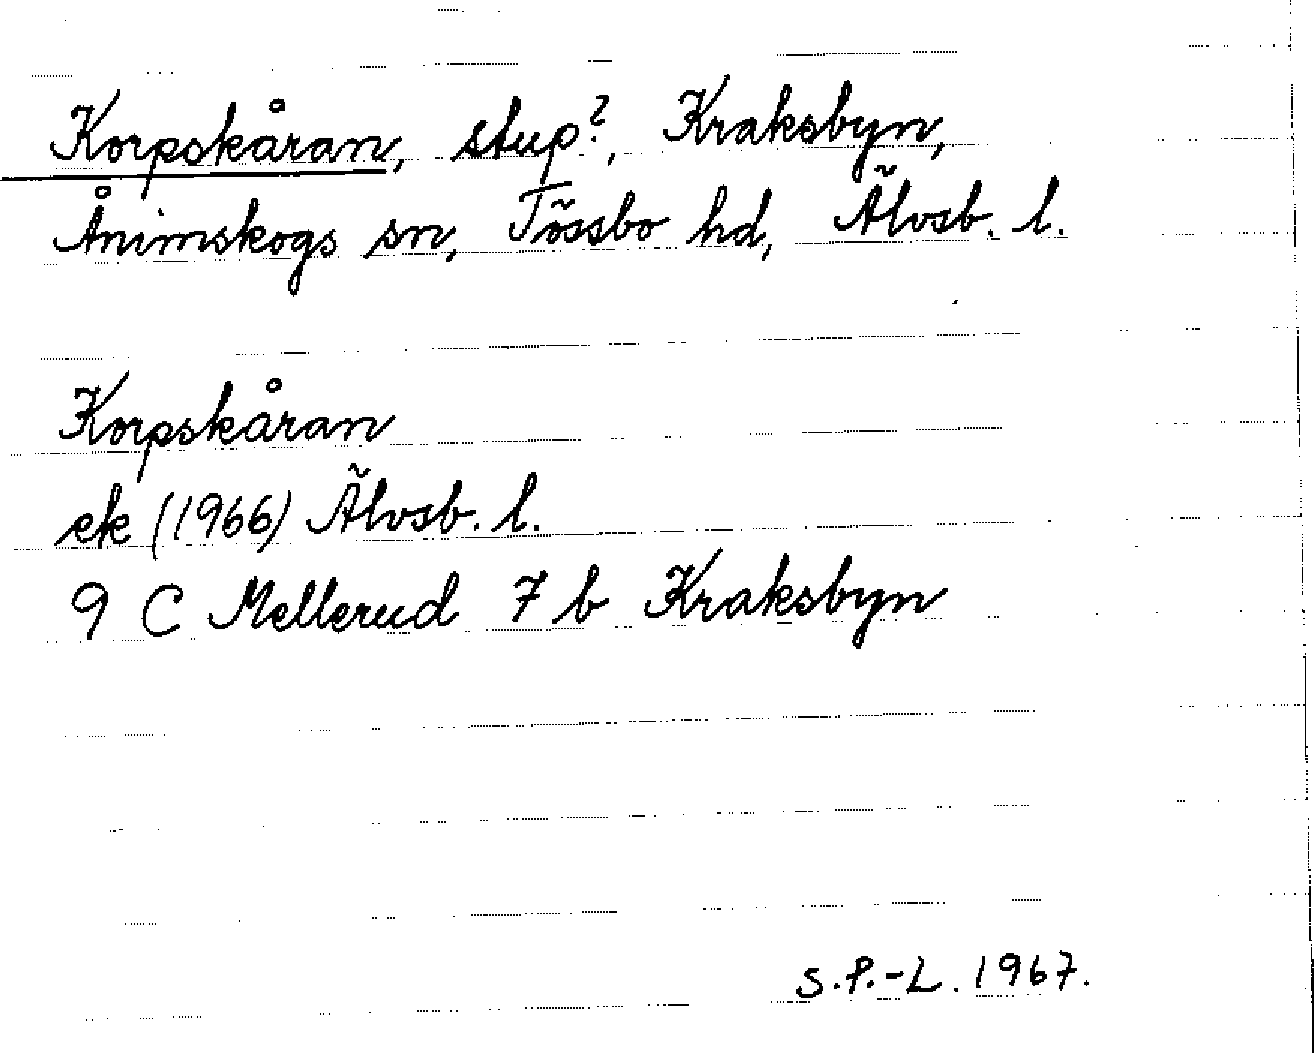 Korpskåran, stup?, Kraksbyn,
Ånimskogs sn, Tössbo hd, Älvsb. l.
Korpskåran
ek (1966) Älvsb. l.
9 C Mellerud 7 b Kraksbyn
S.P.-L. 1967.